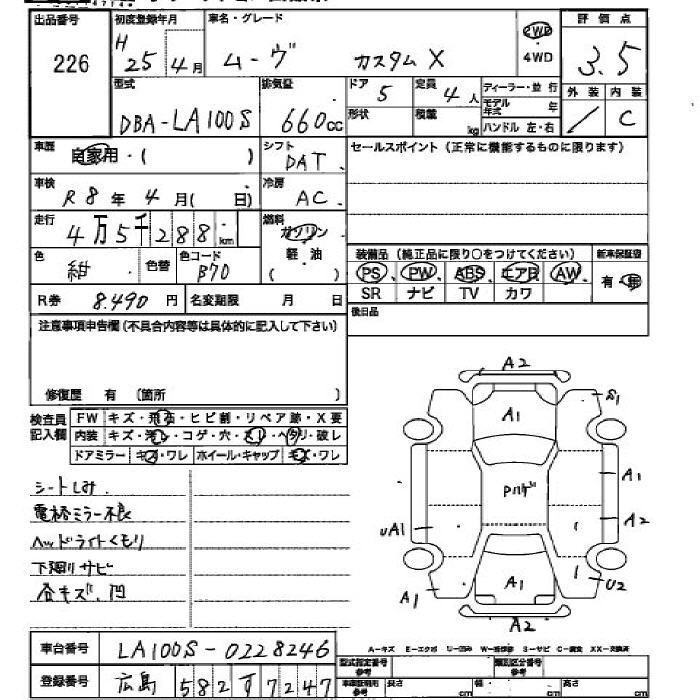 出品番号 初度登録年月 車名・グレード 評価点
226 H 25 4月 ムーヴ カスタムX 2WD ・ 4WD 3.5
型式 排気量 ドア 定員 ディーラー・並行 外装 内装
DBA-LA100S 660cc 5 4人 モデル年式 年 / C
形状 積載 kg ハンドル 左・右
車歴 自家用・( ) シフト DAT セールスポイント(正常に機能するものに限ります)
車検 R8年4月( 日) 冷房 AC
走行 4万5千288km 燃料 ガソリン
軽・油
( )
色 紺 色替 色コード B70 装備品(純正品に限り○をつけてください) 新車保証書
PS PW ABS エアB AW 有・無
SR ナビ TV カワ
R券 8,490円 名変期限 月 日 後日品
注意事項申告欄(不具合内容等は具体的に記入して下さい)
修復歴 有 〔箇所 〕
検査員記入欄 FW キズ・飛石・ヒビ割・リペア跡・X要
内装 キズ・汚レ・コゲ・穴・スレ・ヘタリ・破レ
ドアミラー キズ・ワレ ホイール・キャップ キズ・ワレ
シートしみ
電格ミラー不良
ヘッドライトくもり
下廻りサビ
各キズ、凹
A2
A1
S1
Pハゲ
A1
A2
UA1
A1
A1
U2
A2
車台番号 LA100S-0228246
A-キズ E-エクボ U-凹み W-補修跡 S-サビ C-腐食 XX-交換済
登録番号 広島 582 す 7247
型式指定番号 参考 類別区分番号 参考
長さ cm 幅 cm 高さ cm